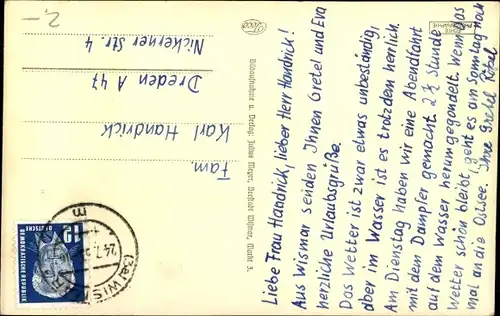 Liebe Frau Handrick, lieber Herr Handrick!
Aus Wismar senden Ihnen Gretel und Eva
herzliche Urlaubsgrüße.
Das Wetter ist zwar etwas unbeständig,
aber im Wasser ist es trotzdem herrlich.
Am Dienstag haben wir eine Abendfahrt
mit dem Dampfer gemacht. 2 ½ Stunde
auf dem Wasser herumgegondelt. Wenn das
Wetter schön bleibt, geht es am Sonntag noch
mal an die Ostsee. Ihre Gretel
Bildaufnahme u. Verlag: Julius Meyer, Seestadt Wismar, Markt 3.
ECHTE
Fam.
Karl Handrick
Dresden A 47
Nickerner Str. 4
2,-
12
DEUTSCHE
DEMOKRATISCHE REPUBLIK
WISMAR
24.7.